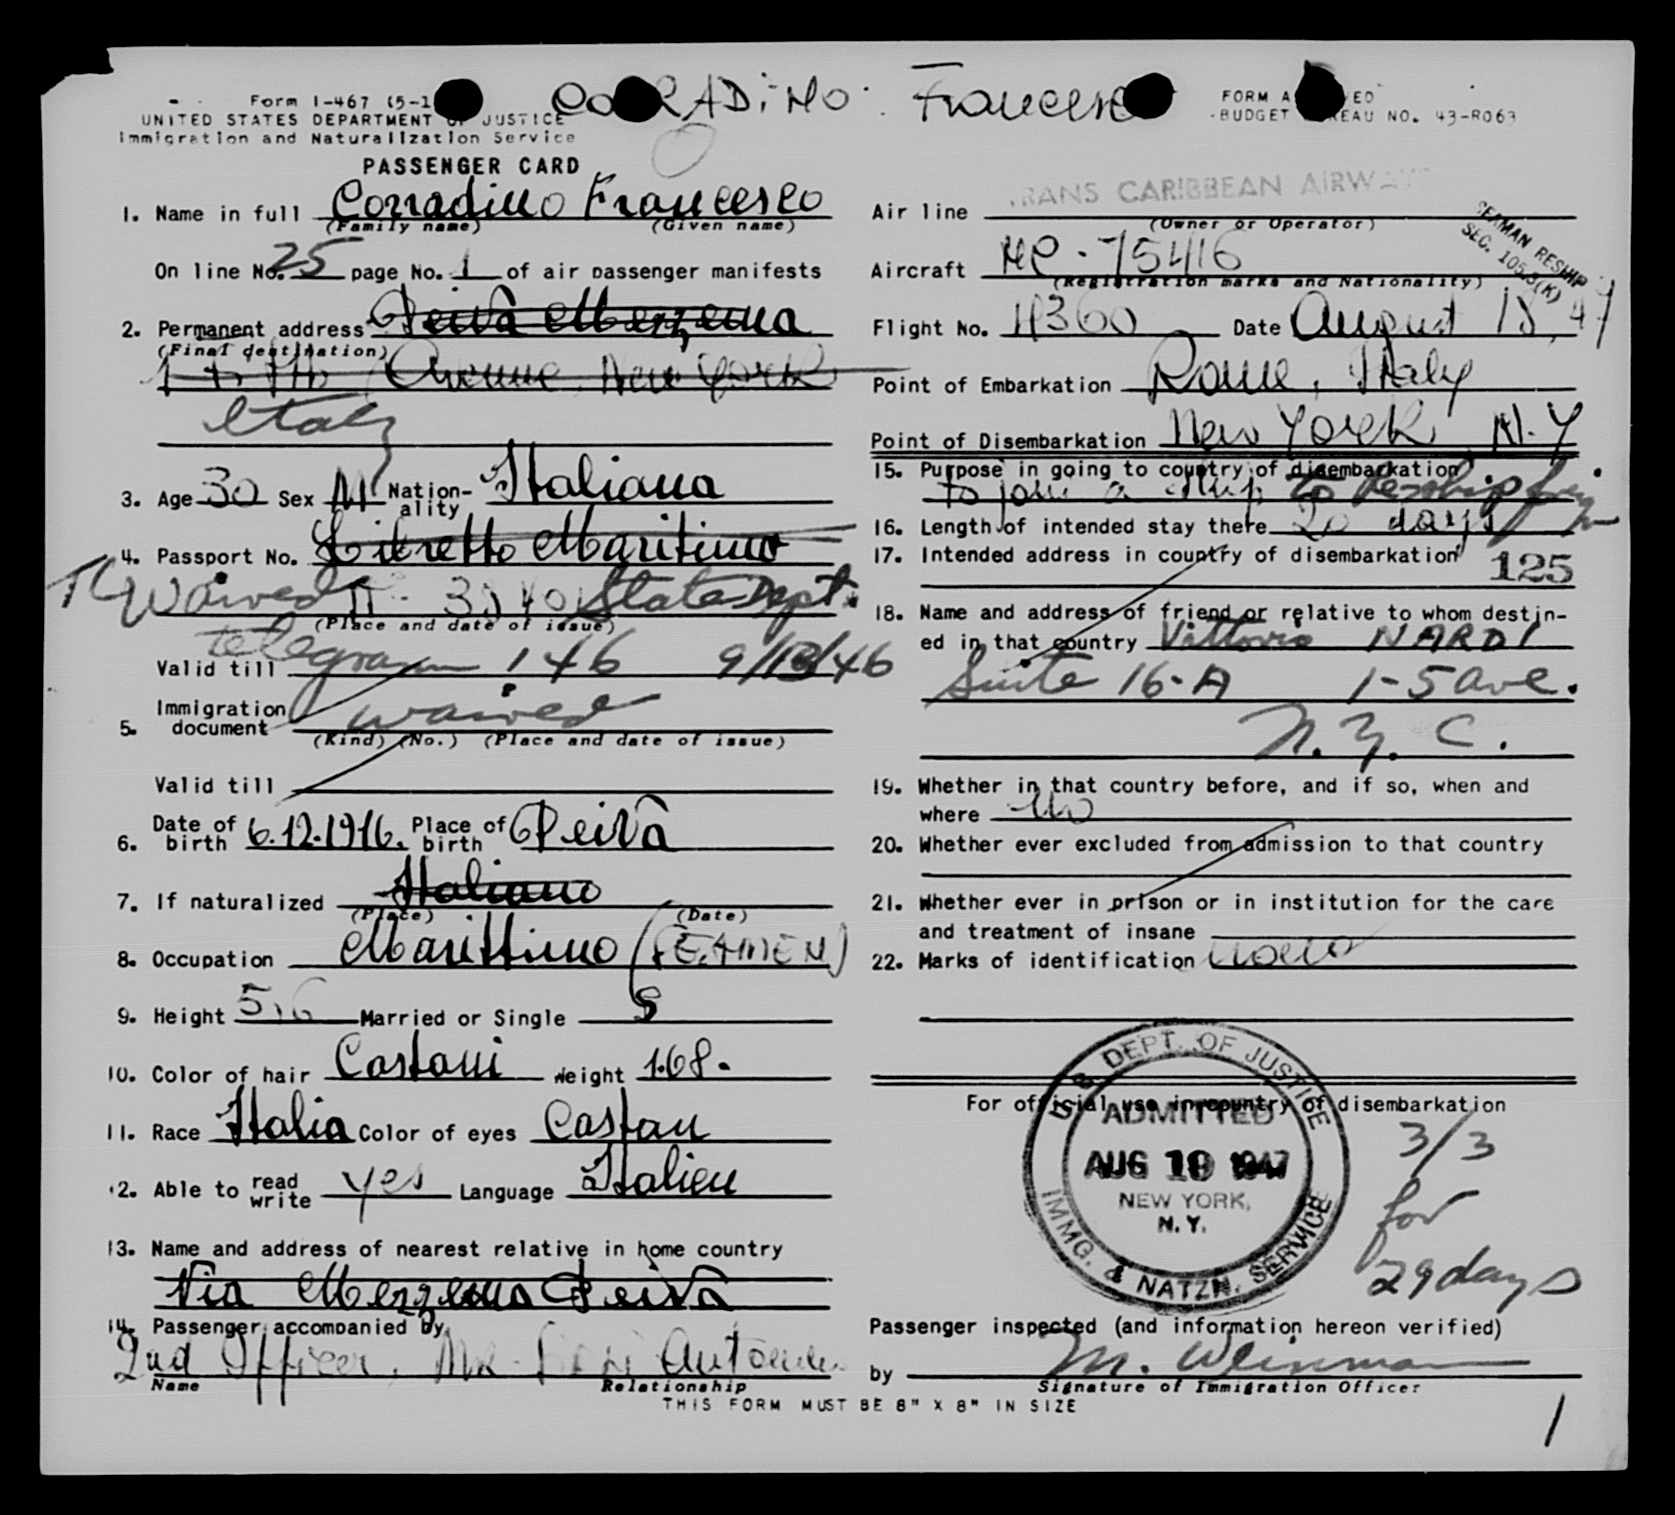 CORRADiNO Francesco
Form I-467 (5-1
UNITED STATES DEPARTMENT OF JUSTICE
Immigration and Naturalization Service
FORM A ED
BUDGET BUREAU NO. 43-R063
PASSENGER CARD
1. Name in full Corradino Francesco
(Family name) (Given name)
On line No. 25 page No. 1 of air passenger manifests
2. Permanent address
(Final destination)
Avenue, New York
Italy
3. Age 30 Sex M Nation-ality Italiana
4. Passport No. Libretto Marittimo
Waived State Dept.
(Place and date of issue)
telegram 146 9/13/46
Valid till
5. Immigration document waived
(Kind) (No.) (Place and date of issue)
Valid till
6. Date of birth 6.12.1916. Place of birth
7. If naturalized Italiano
(Place) (Date)
8. Occupation Marittimo (SEAMEN)
9. Height 5,6 Married or Single S
10. Color of hair Castani Weight 168.
11. Race Italia Color of eyes Castan
12. Able to read write yes Language Italien
13. Name and address of nearest relative in home country
Via
14. Passenger accompanied by
2nd Officer, Mr.
Name Relationship
TRANS CARIBBEAN AIRWAYS
Air line
(Owner or Operator)
SEAMAN RESHIP
SEC. 105.3(K)
Aircraft NC-75416
(Registration marks and Nationality)
Flight No. Date August 18, 47
Point of Embarkation Rome, Italy
Point of Disembarkation New York N.Y
15. Purpose in going to country of disembarkation
to join a ship to Reship foreign
16. Length of intended stay there 20 days
17. Intended address in country of disembarkation
125
18. Name and address of friend or relative to whom destin-
ed in that country Vittorio NARDI
Suite 16-A 1-5 ave.
N.Y.C.
19. Whether in that country before, and if so, when and
where no
20. Whether ever excluded from admission to that country
21. Whether ever in prison or in institution for the care
and treatment of insane
22. Marks of identification
For official use in country of disembarkation
U.S. DEPT. OF JUSTICE
ADMITTED
AUG 19 1947
NEW YORK,
N.Y.
IMMG. & NATZN. SERVICE
3/3
for
29 days
Passenger inspected (and information hereon verified)
by M. Weinman
Signature of Immigration Officer
THIS FORM MUST BE 8" X 8" IN SIZE
1